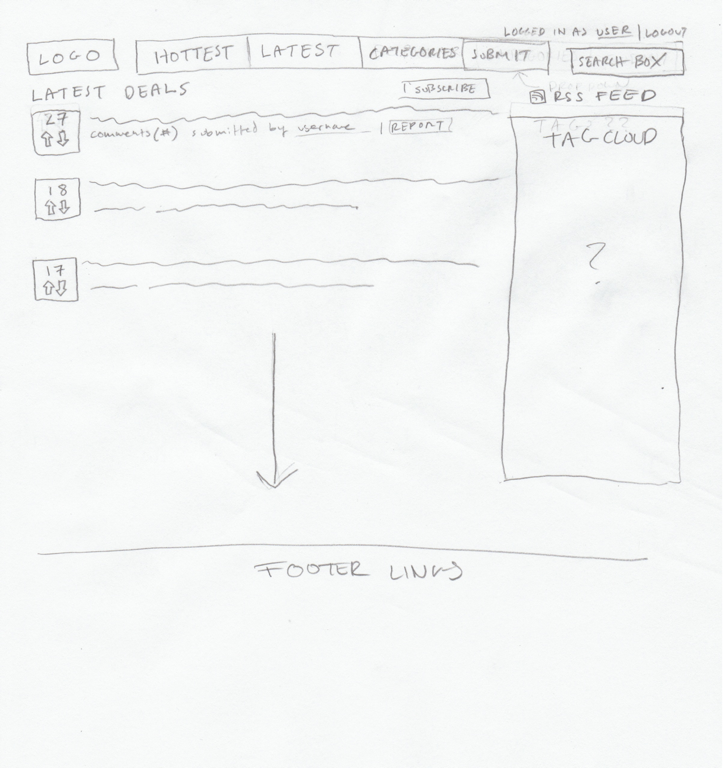 LOGGED IN AS USER | LOGOUT
LOGO
HOTTEST
LATEST
CATEGORIES
SUBMIT
SEARCH BOX
LATEST DEALS
SUBSCRIBE
RSS FEED
27
comments(#) submitted by username | REPORT
TAGS ??
TAG CLOUD
18
?
17
FOOTER LINKS